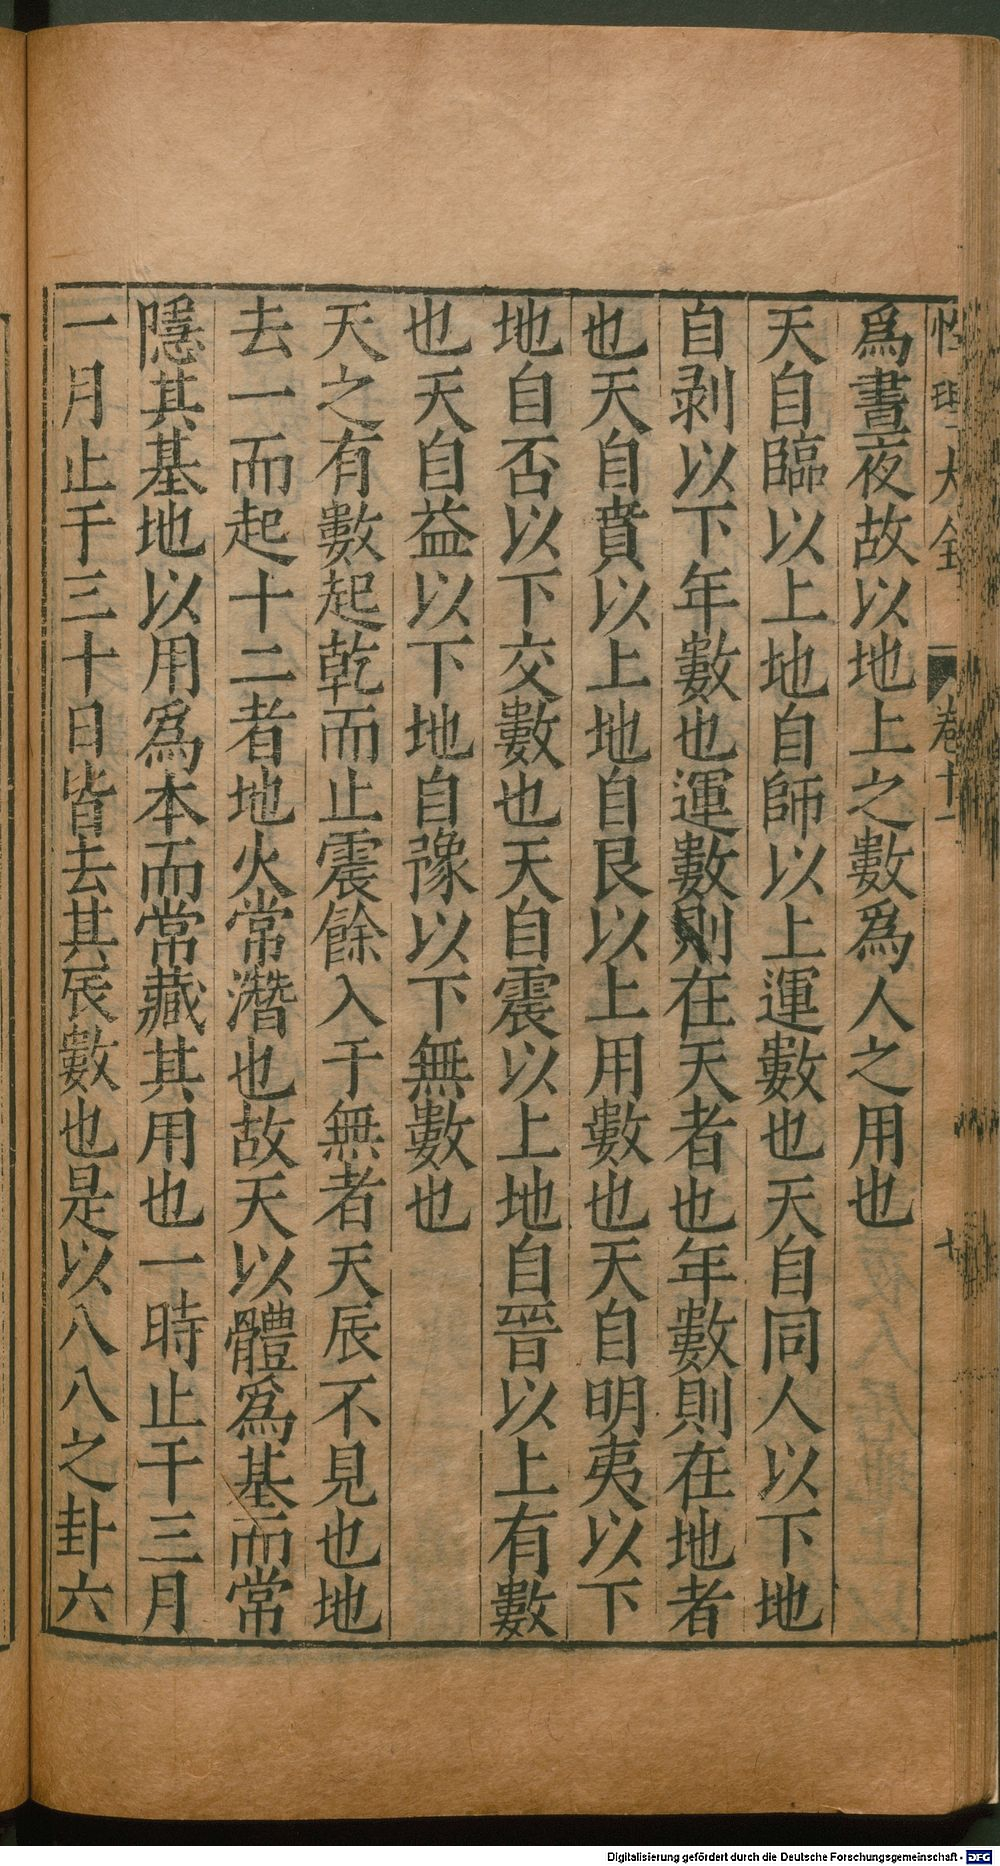 性理大全 卷十一 十
爲晝夜故以地上之數爲人之用也
天自臨以上地自師以上運數也天自同人以下地
自剥以下年數也運數則在天者也年數則在地者
也天自賁以上地自艮以上用數也天自明夷以下
地自否以下交數也天自震以上地自晉以上有數
也天自益以下地自豫以下無數也
天之有數起乾而止震餘入于無者天辰不見也地
去一而起十二者地火常潛也故天以體爲基而常
隱其基地以用爲本而常藏其用也一時止于三月
一月止于三十日皆去其辰數也是以八八之卦六
Digitalisierung gefördert durch die Deutsche Forschungsgemeinschaft - DFG